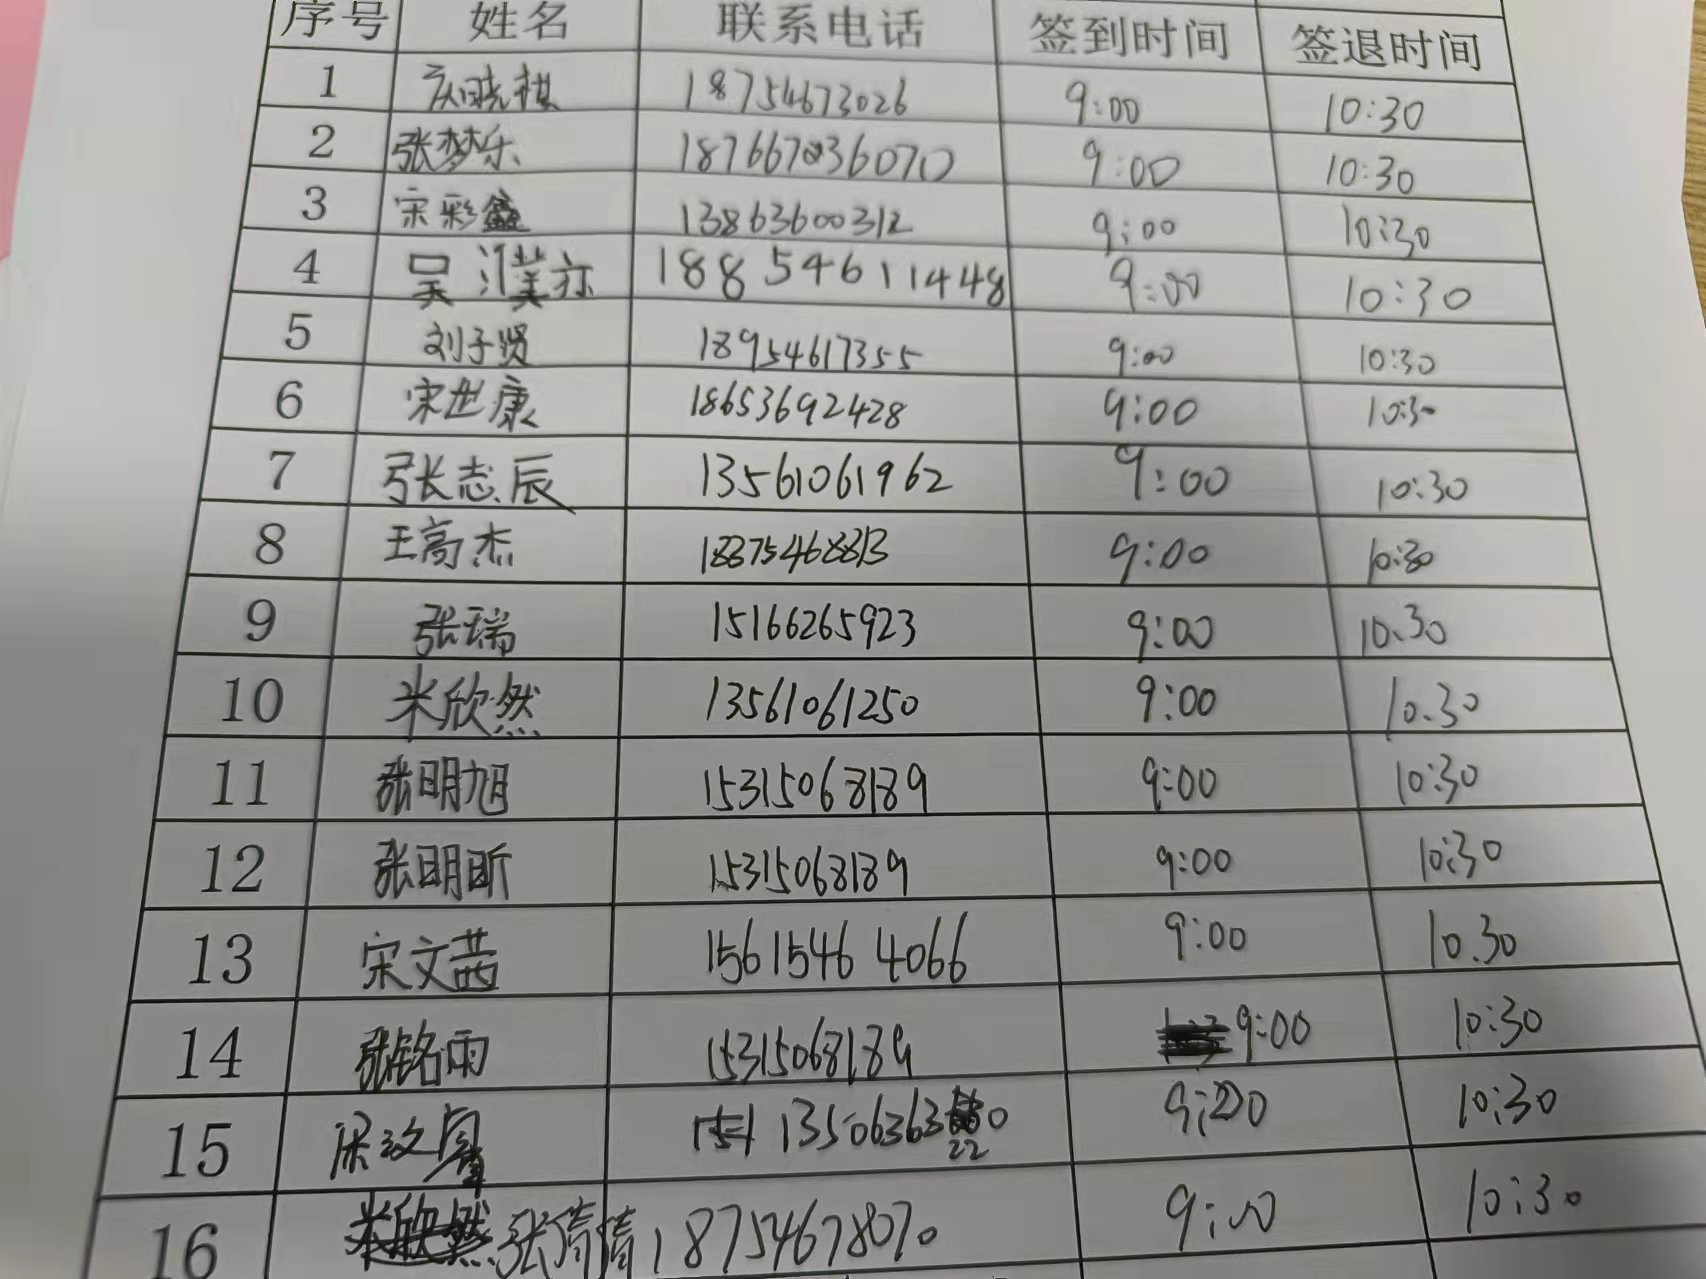 序号 姓名 联系电话 签到时间 签退时间
1 晓棋 18754673026 9:00 10:30
2 张梦乐 9:00 10:30
3 宋彩鑫 13863600312 9:00 10:30
4 吴 亦 18854611448 9:00 10:30
5 刘子贤 18954617355 9:00 10:30
6 宋世康 18653692428 9:00 10:30
7 张志辰 13561061962 9:00 10:30
8 王高杰 9:00 10:30
9 张瑞 15166265923 9:00 10.30
10 米欣然 13561061250 9:00 10.30
11 张明旭 15315068189 9:00 10:30
12 张明昕 15315068189 9:00 10:30
13 宋文茜 15615464066 9:00 10.30
14 张铭雨 15315068189 9:00 10:30
15 13506363220 10:30
16 张倩倩 18754678070 9:00 10:30